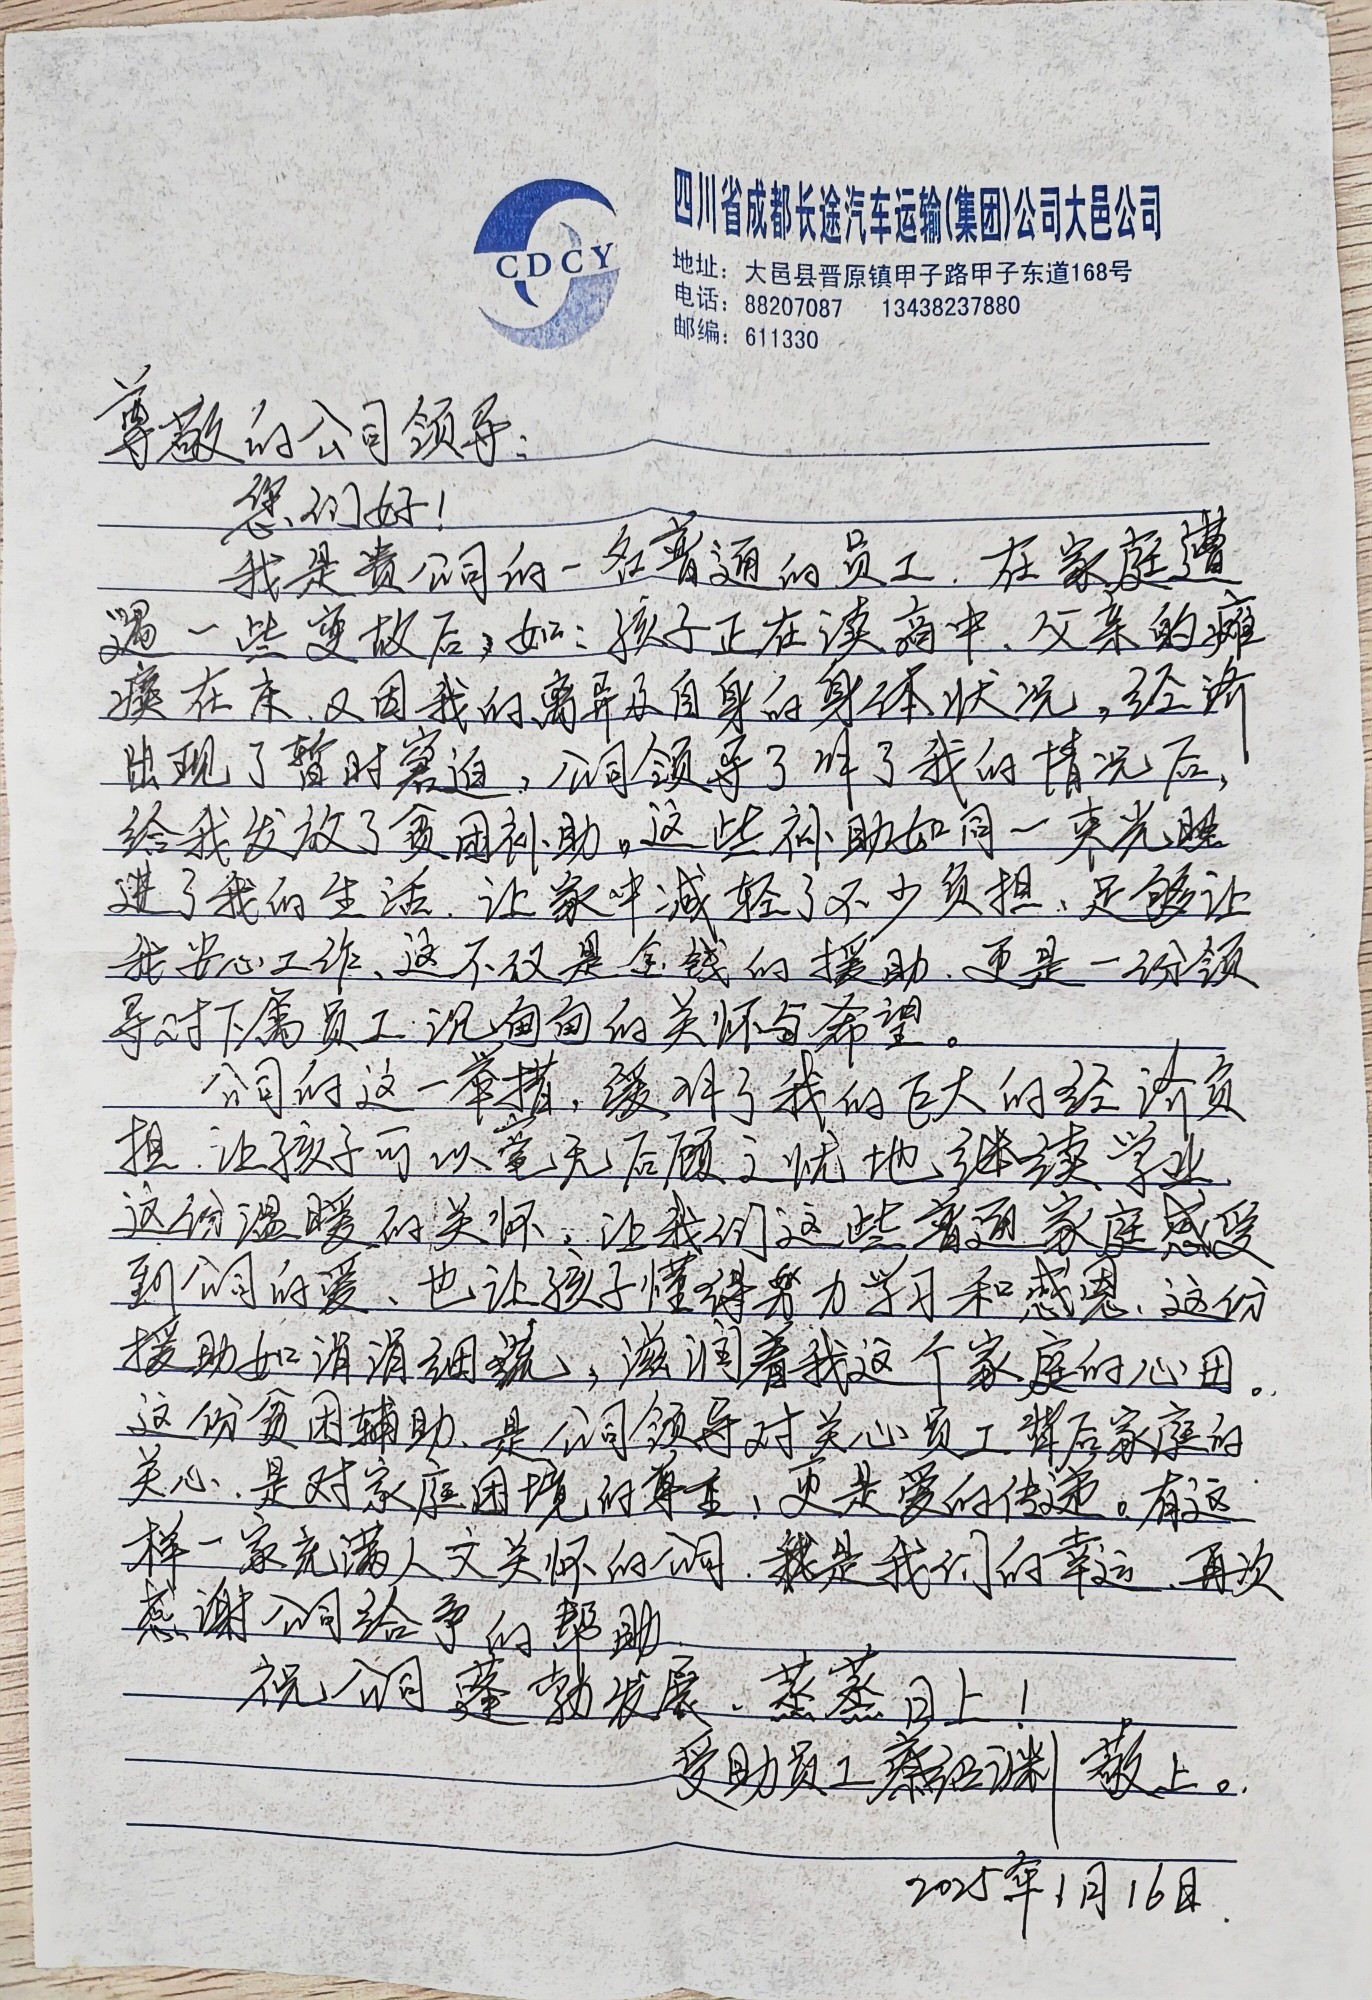 CDCY
四川省成都长途汽车运输(集团)公司大邑公司
地址：大邑县晋原镇甲子路甲子东道168号
电话：88207087 13438237880
邮编：611330
尊敬的公司领导：
您们好！
我是贵公司的一名普通的员工，在家庭遭
遇一些变故后，如：孩子正在读高中、父亲的瘫
痪在床、又因我的离异及自身的身体状况，经济
出现了暂时窘迫，公司领导了解了我的情况后，
给我发放了贫困补助。这些补助如同一束光照
进了我的生活，让家中减轻了不少负担，足够让
我安心工作、这不仅是金钱的援助，更是一份领
导对下属员工沉甸甸的关怀与希望。
公司的这一举措，缓解了我的巨大的经济负
担，让孩子可以毫无后顾之忧地继续学业
这份温暖的关怀，让我们这些普通家庭感受
到公司的爱、也让孩子懂得努力学习和感恩，这份
援助如涓涓细流，滋润着我这个家庭的心田。
这份贫困辅助、是公司领导对关心员工背后家庭的
关心，是对家庭困境的尊重，更是爱的传递。有这
样一家充满人文关怀的公司，我是我们的幸运，再次
感谢公司给予的帮助．
祝公司蓬勃发展，蒸蒸日上！
受助员工 敬上。
2025年1月16日．